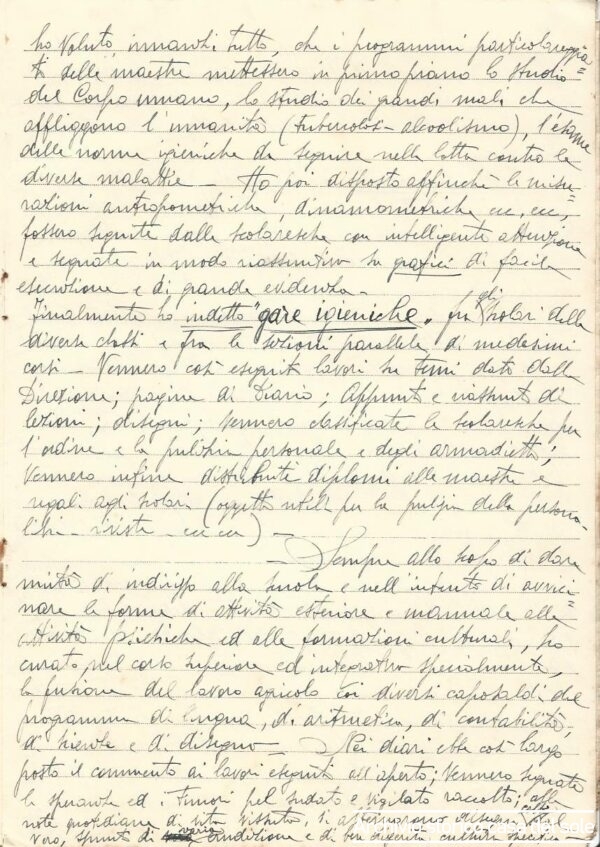 ho voluto, innanzi tutto, che i programmi particolareggia=
ti delle maestre mettessero in primo piano lo studio
del Corpo umano, lo studio dei grandi mali che
affliggono l'umanità (tubercolosi - alcoolismo), l'esame
delle norme igieniche da seguire nella lotta contro le
diverse malattie - Ho poi disposto affinchè le misu=
razioni antropometriche, dinamometriche ecc, ecc,
fossero seguite dalle scolaresche con intelligente attenzione
e segnate in modo riassuntivo su grafici di facile
esecuzione e di grande evidenza.
Finalmente ho indetto "gare igieniche" fra gli scolari delle
diverse classi e fra le sezioni parallele di medesimi
corsi - Vennero così eseguiti lavori su temi dati dalla
Direzione; pagine di Diario; Appunti e riassunti di
lezioni; disegni; vennero classificate le scolaresche per
l'ordine e la pulizia personale e degli armadietti;
vennero infine distribuiti diplomi alle maestre e
regali agli scolari (oggetti utili per la pulizia della persona-
libri - riviste - ecc ecc) -
- Sempre allo scopo di dare
unità di indirizzo alla scuola e nell'intento di avvici=
nare le forme di attività esteriore e manuale alle
attività psichiche ed alle formazioni culturali, ho
curato, nel corso superiore ed integrativo specialmente,
la fusione del lavoro agricolo coi diversi caposaldi del
programma di lingua, di aritmetica, di contabilità,
di scienze e di disegno - Nei diari ebbe così largo
posto il commento ai lavori eseguiti all'aperto; vennero segnate
le speranze ed i timori pel sudato e vigilato raccolto;
note quotidiane di vita vissuta, si dal
vero, spunti di varia e di